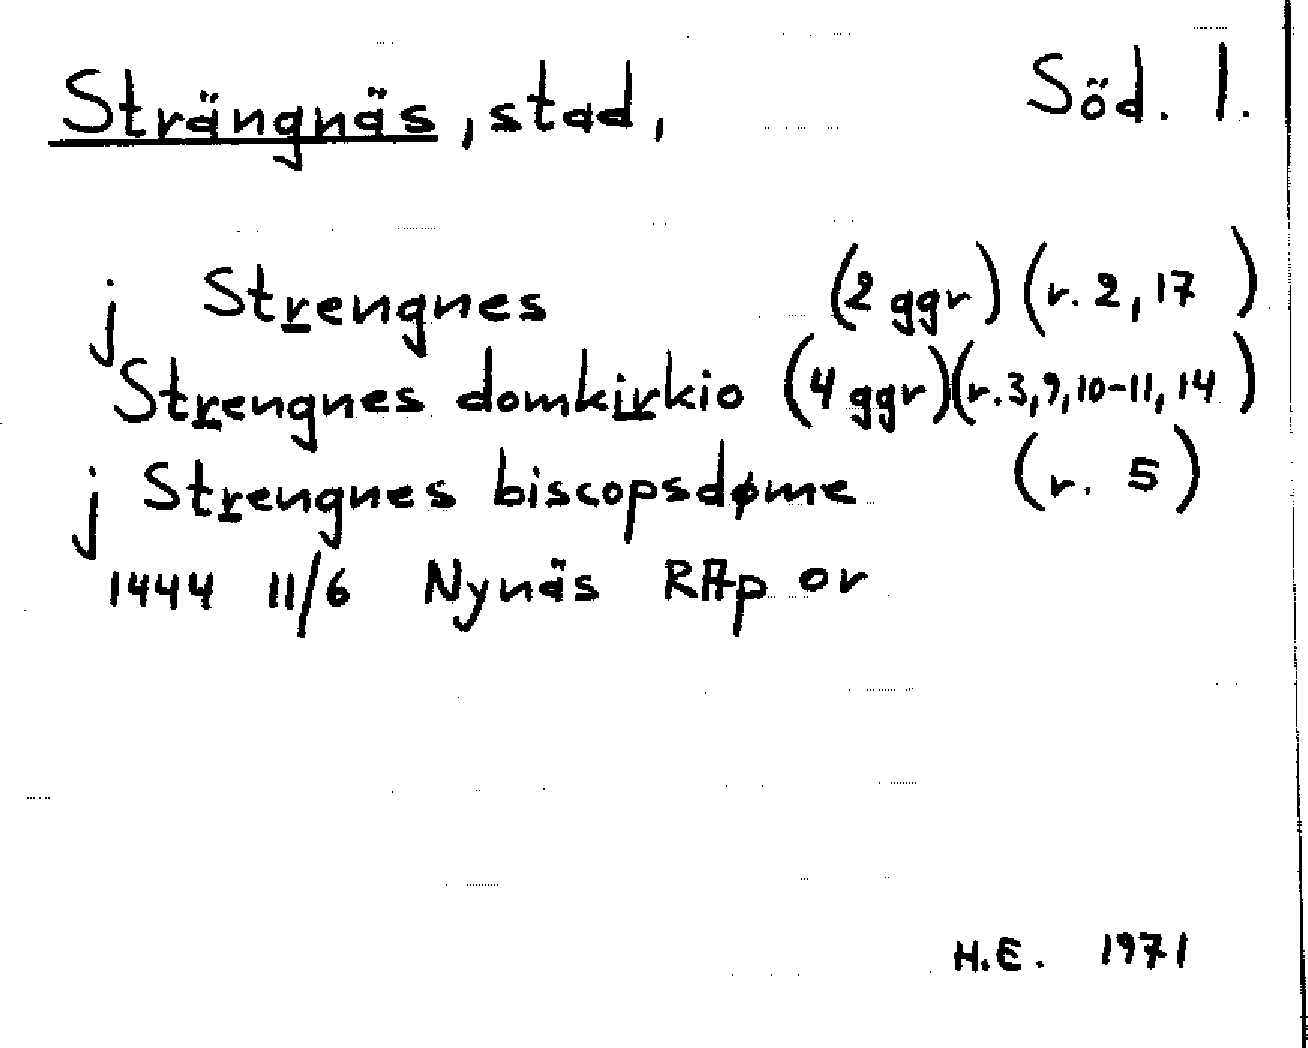 Strängnäs, stad, Söd. l.
j Strengnes (2 ggr) (r. 2, 17 )
Strengnes domkirkio (4 ggr) (r. 3, 9, 10-11, 14 )
j Strengnes biscopsdøme (r. 5)
1444 11/6 Nynäs RAp or
H.E. 1971